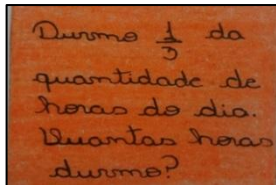 Durmo 1/3 da
quantidade de
horas do dia.
Quantas horas
durmo?